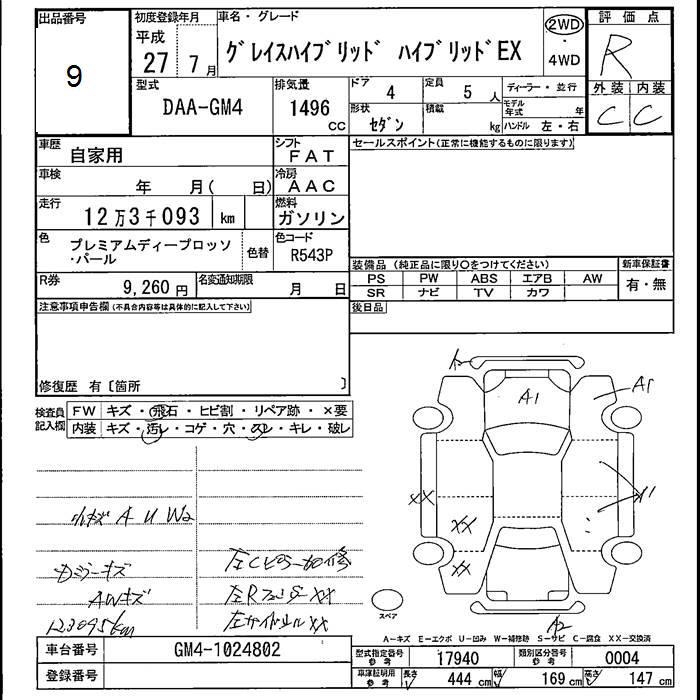 出品番号
9
初度登録年月
平成
27 7月
車名・グレード
グレイスハイブリッド ハイブリッドEX
2WD
・
4WD
評価点
R
外装 内装
C C
型式
DAA-GM4
排気量
1496
CC
ドア 4
定員 5 人
形状 セダン
積載 kg
ディーラー・並行
モデル年式 年
ハンドル 左・右
車歴 自家用
シフト FAT
車検 年 月( 日)
冷房 AAC
走行 12万3千093 km
燃料 ガソリン
色 プレミアムディープロッソ
・パール
色替
色コード R543P
R券 9,260円
名変通知期限 月 日
セールスポイント(正常に機能するものに限ります)
装備品 (純正品に限り○をつけてください)
PS PW ABS エアB AW
SR ナビ TV カワ
新車保証書
有・無
後日品
注意事項申告欄(不具合内容等は具体的に記入して下さい)
修復歴 有〔箇所 〕
検査員
記入欄
FW キズ・飛石・ヒビ割・リペア跡・×要
内装 キズ・汚レ・コゲ・穴・スレ・キレ・破レ
小キズ A U W2
AWキズ
123095km
左Cピラー
XX
左サイドシル XX
A1
A1
XX
XX
XX
A2
スペア
A-キズ E-エクボ U-凹み W-補修跡 S-サビ C-腐食 XX-交換済
車台番号 GM4-1024802
登録番号
型式指定番号
参考
17940
類別区分番号
参考
0004
車庫証明用
参考
長さ 444 cm
幅 169 cm
高さ 147 cm